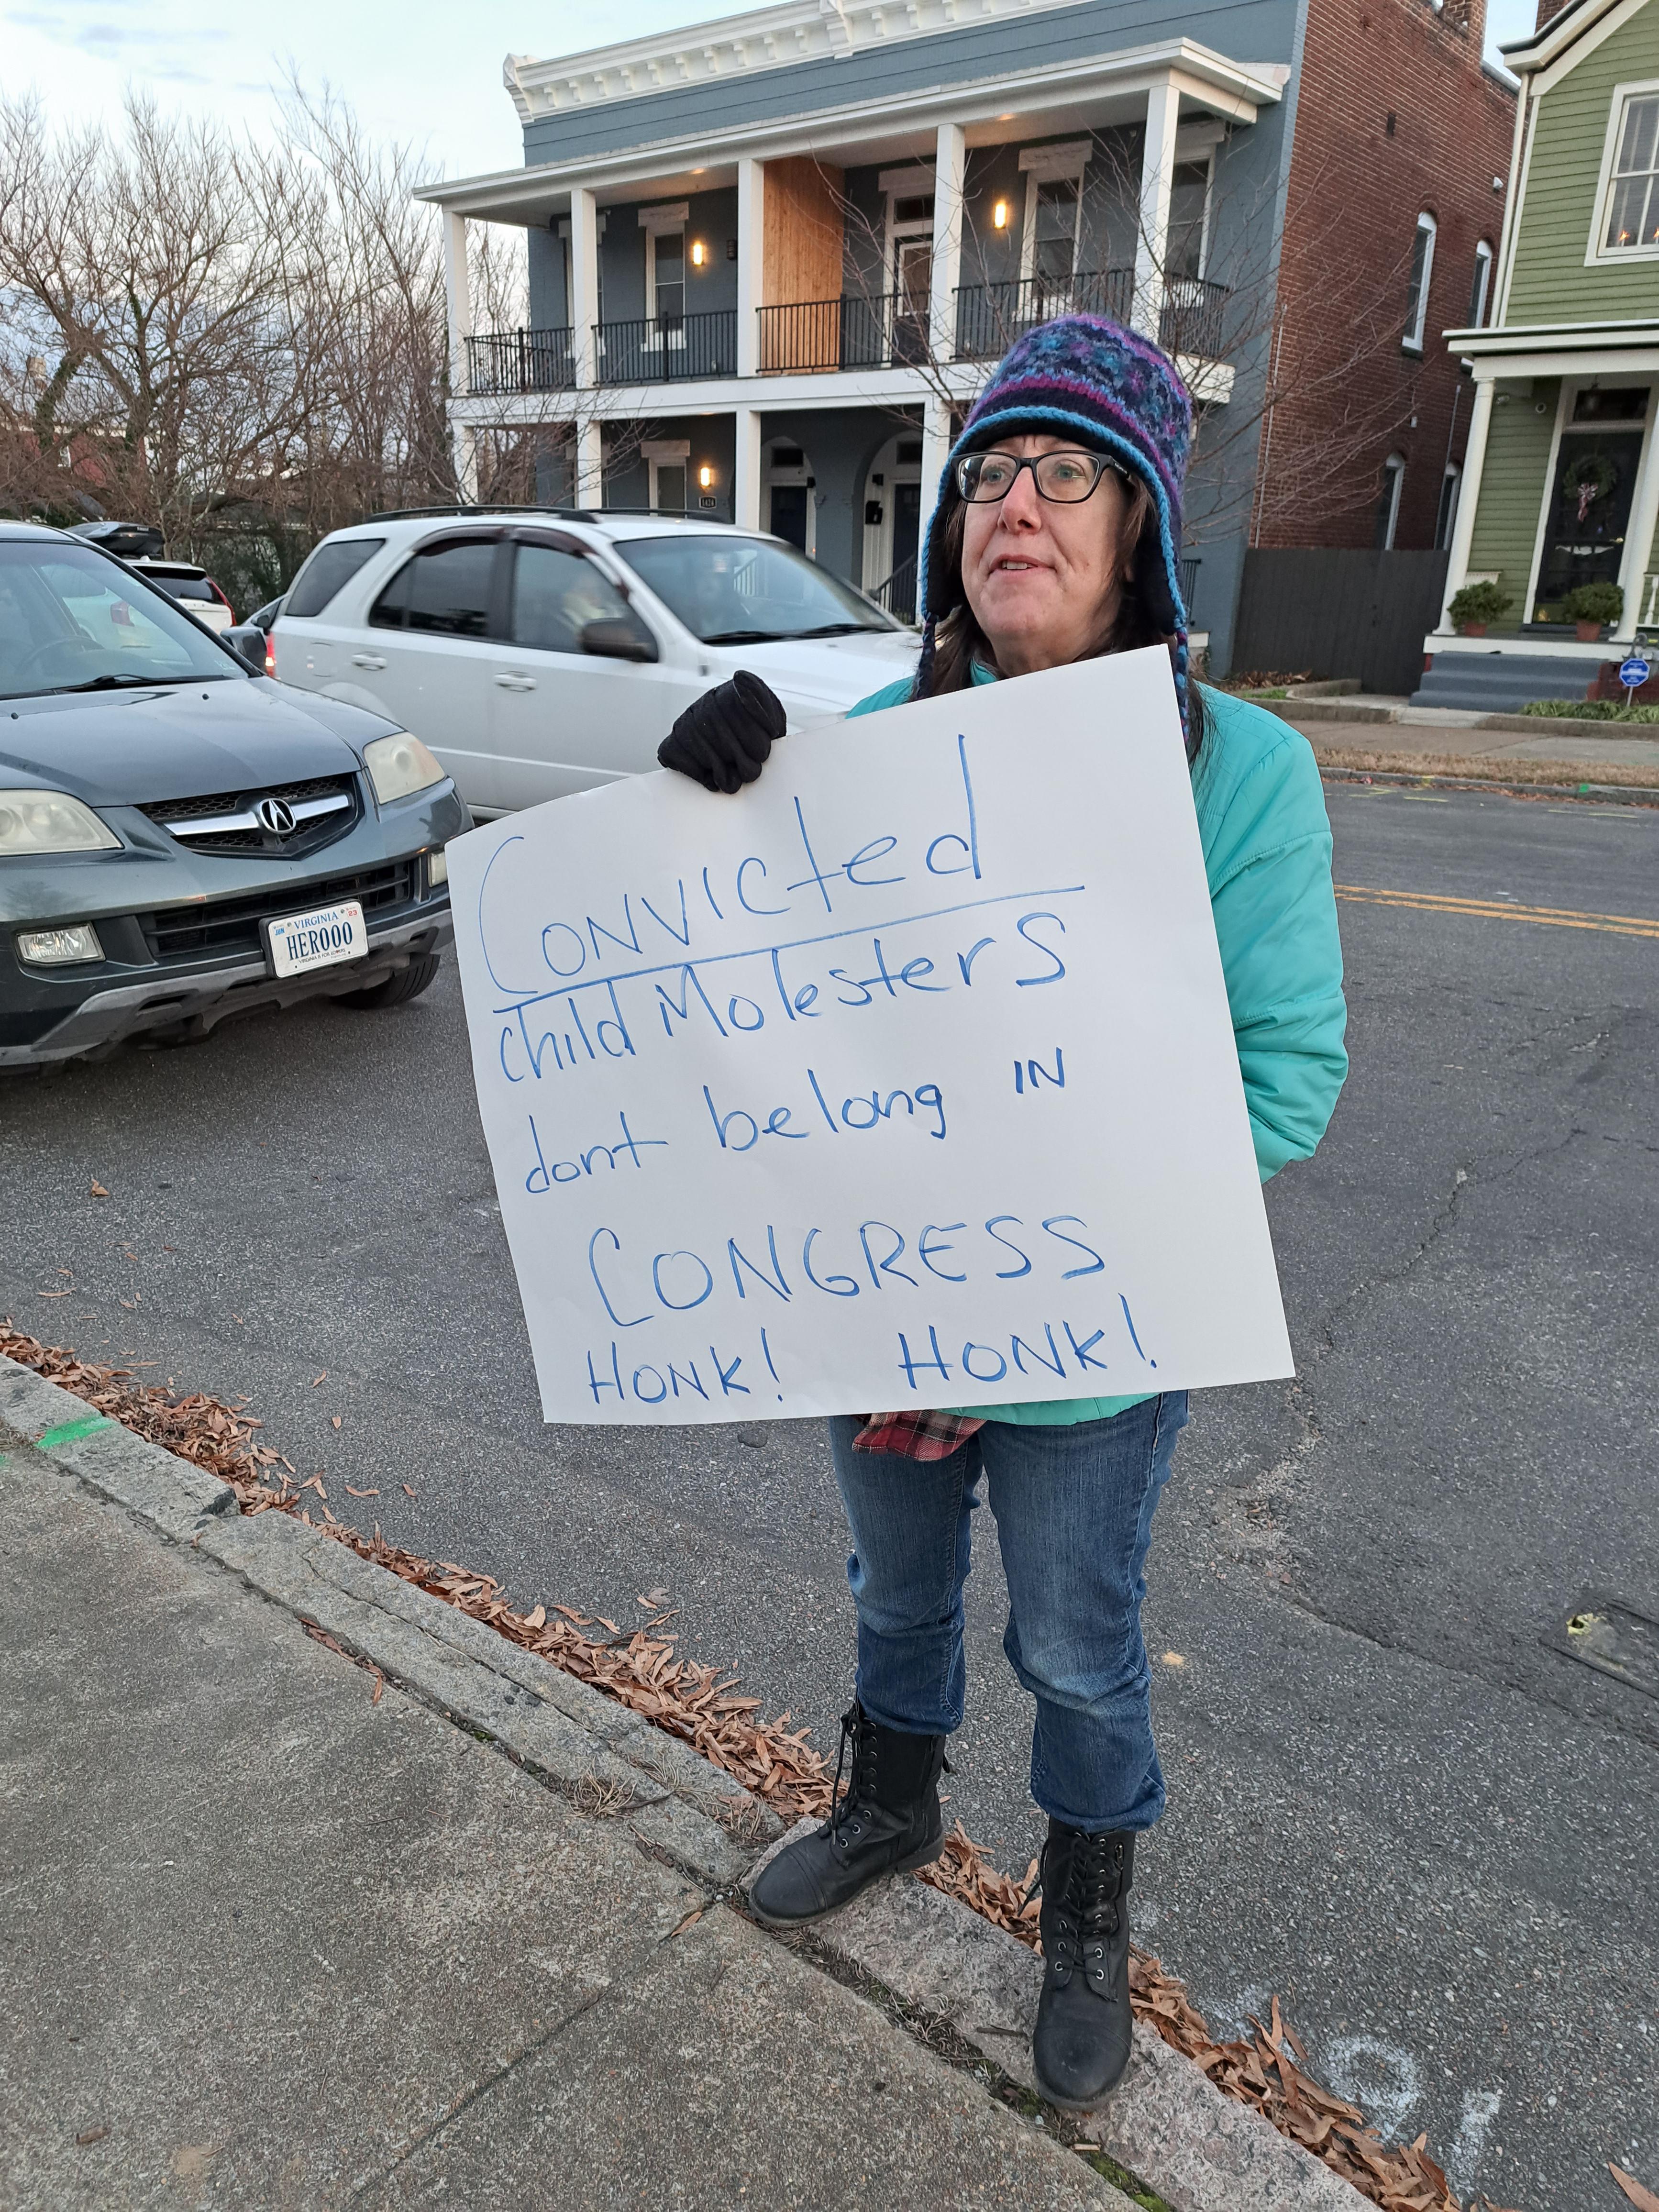 Convicted
child Molesters
dont belong IN
CONGRESS
HONK! HONK!
VIRGINIA
JAN 23
HEROOO
VIRGINIA IS FOR LOVERS
1624